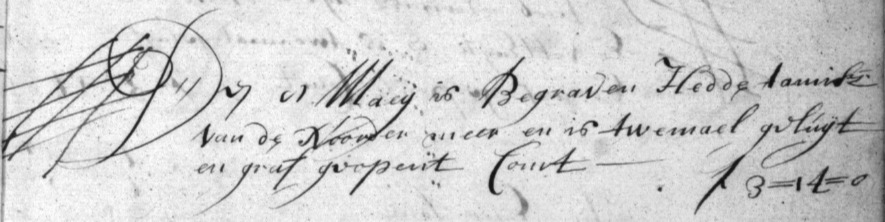 Maey is Begraven Hedde
van de Noorder meer en is twemael geluijt
en graf geopent Comt — f 3=14=0